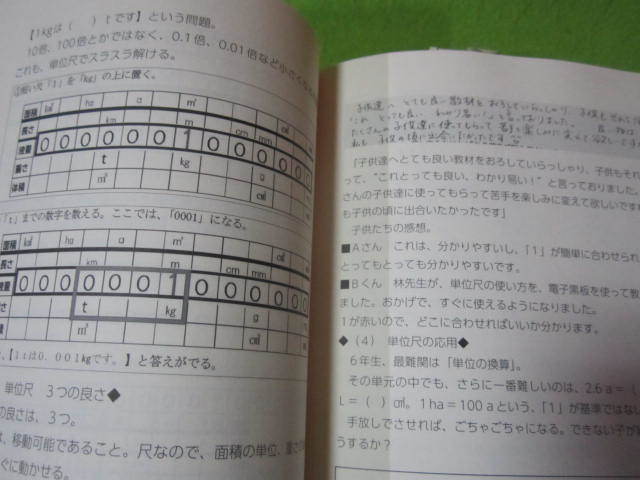 【1kgは（　）tです】という問題。
10倍、100倍とかではなく、0.1倍、0.01倍など小さくな
これも、単位尺でスラスラ解ける。
①赤い尺「1」を「kg」の上に置く。
面積 k㎡ ha a ㎡ c㎡
長さ km m cm mm
0 0 0 0 0 0 1 0 0 0 0 0 0
重さ t kg g
体積 ㎥ c㎥
「t」までの数字を数える。ここでは、「0001」になる。
面積 k㎡ ha a ㎡
長さ km m cm mm
0 0 0 0 0 0 1 0 0 0 0 0 0
t kg g
㎥ c㎥
、【1tは0．001kgです。】と答えがでる。
単位尺　3つの良さ◆
の良さは、3つ。
は、移動可能であること。尺なので、面積の単位、
ぐに動かせる。
子供達へとても良い教材をおろしていらっしゃり、子供もそれ
「これ とっても良い、わかり易い！」と言っておりました。
たくさんの子供達に使ってもらって苦手を楽しみに変えて
私も子供の頃に出合いたかったです
「子供達へとても良い教材をおろしていらっしゃり、子供もそれ
って、“これとっても良い、わかり易い！”と言っておりました。
さんの子供達に使ってもらって苦手を楽しみに変えて欲しいですね
も子供の頃に出合いたかったです」
子供たちの感想。
■Aさん　これは、分かりやすいし、「1」が簡単に合わせられ
とってもとっても分かりやすいです。
■Bくん　林先生が、単位尺の使い方を、電子黒板を使って教
ました。おかげで、すぐに使えるようになりました。
1が赤いので、どこに合わせればいいか分かります。
◆（4）　単位尺の応用◆
6年生、最難関は「単位の換算」。
その単元の中でも、さらに一番難しいのは、2.6a＝（
L＝（　）c㎥。1ha＝100aという、「1」が基準ではない
手放しでさせれば、ごちゃごちゃになる。できない子が
うするか？